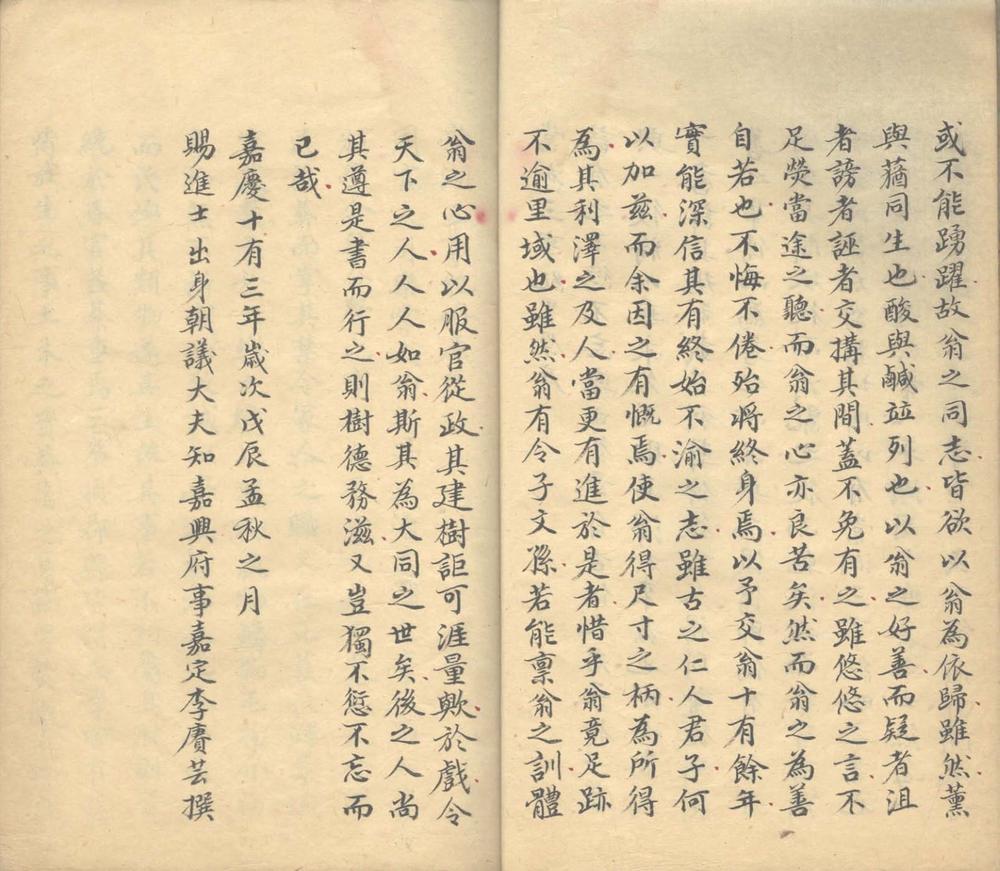 或不能踴躍故翁之同志皆欲以翁為依歸雖然薰
與蕕同生也酸與鹹並列也以翁之好善而疑者沮
者謗者誣者交搆其間蓋不免有之雖悠悠之言不
足熒當途之聽而翁之心亦良苦矣然而翁之為善
自若也不悔不倦殆將終身焉以予交翁十有餘年
實能深信其有終始不渝之志雖古之仁人君子何
以加茲而余因之有慨焉使翁得尺寸之柄為所得
為其利澤之及人當更有進於是者惜乎翁竟足跡
不逾里域也雖然翁有令子文孫若能禀翁之訓體
翁之心用以服官從政其建樹詎可涯量歟於戲令
天下之人人人如翁斯其為大同之世矣後之人尚
其遵是書而行之則樹德務滋又豈獨不愆不忘而
已哉
嘉慶十有三年歲次戊辰孟秋之月
賜進士出身朝議大夫知嘉興府事嘉定李賡芸撰